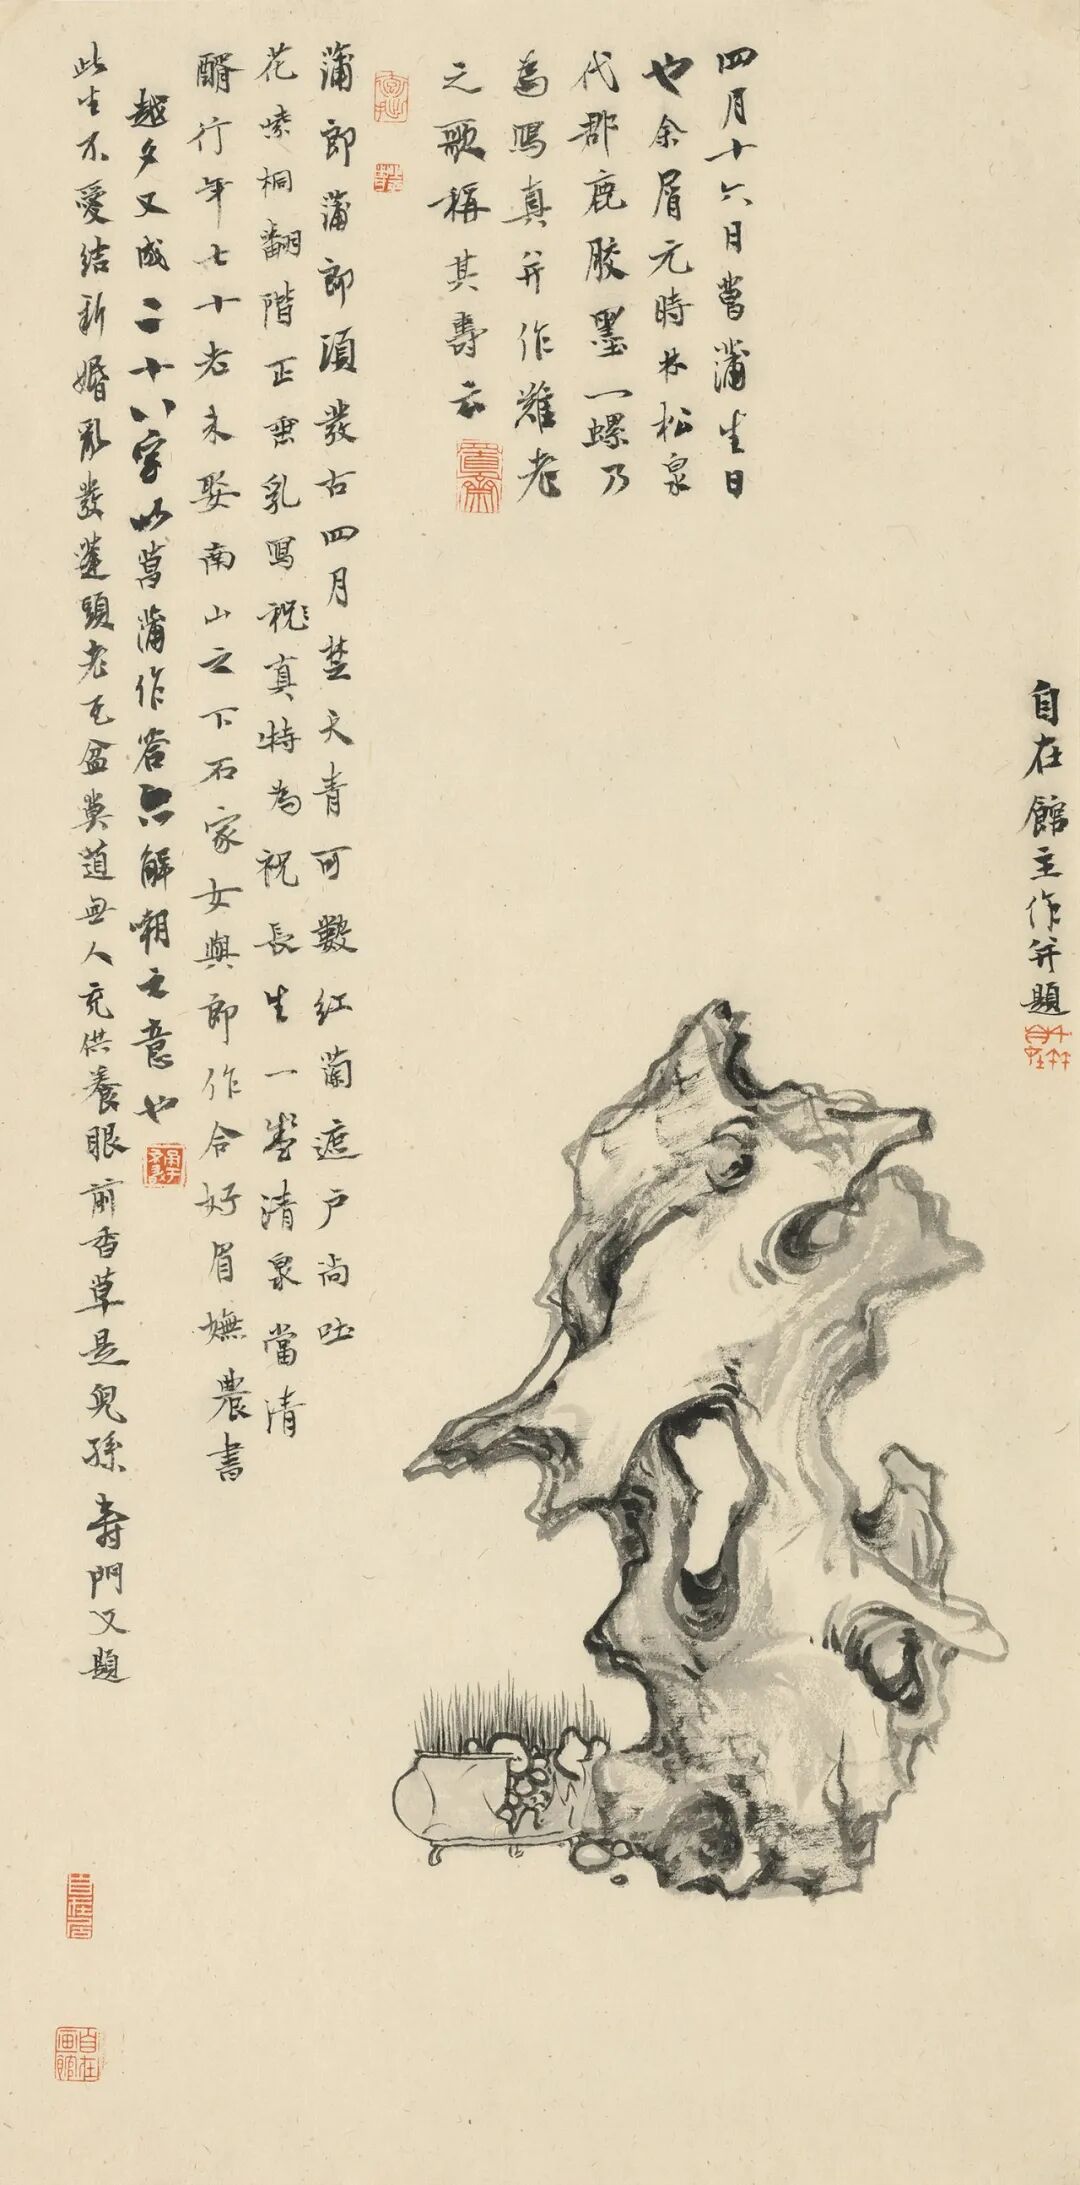 四月十六日菖蒲生日
也余屑元時林松泉
代郡鹿膠墨一螺乃
為寫真并作難老
之歌稱其壽云
蒲郎蒲郎須髮古四月楚天青可數紅蘭遮戶尚吐
花嗉桐翻階正垂乳寫祝真特為祝長生一盞清泉當清
醑行年七十老未娶南山之下石家女與郎作合好眉嫵農書
越夕又成二十八字以菖蒲作答亦解嘲之意也
此生不愛結新婚亂髮蓬頭老瓦盆莫道無人充供養眼前香草是兒孫 壽門又題
自在館主作并題
自在
画館